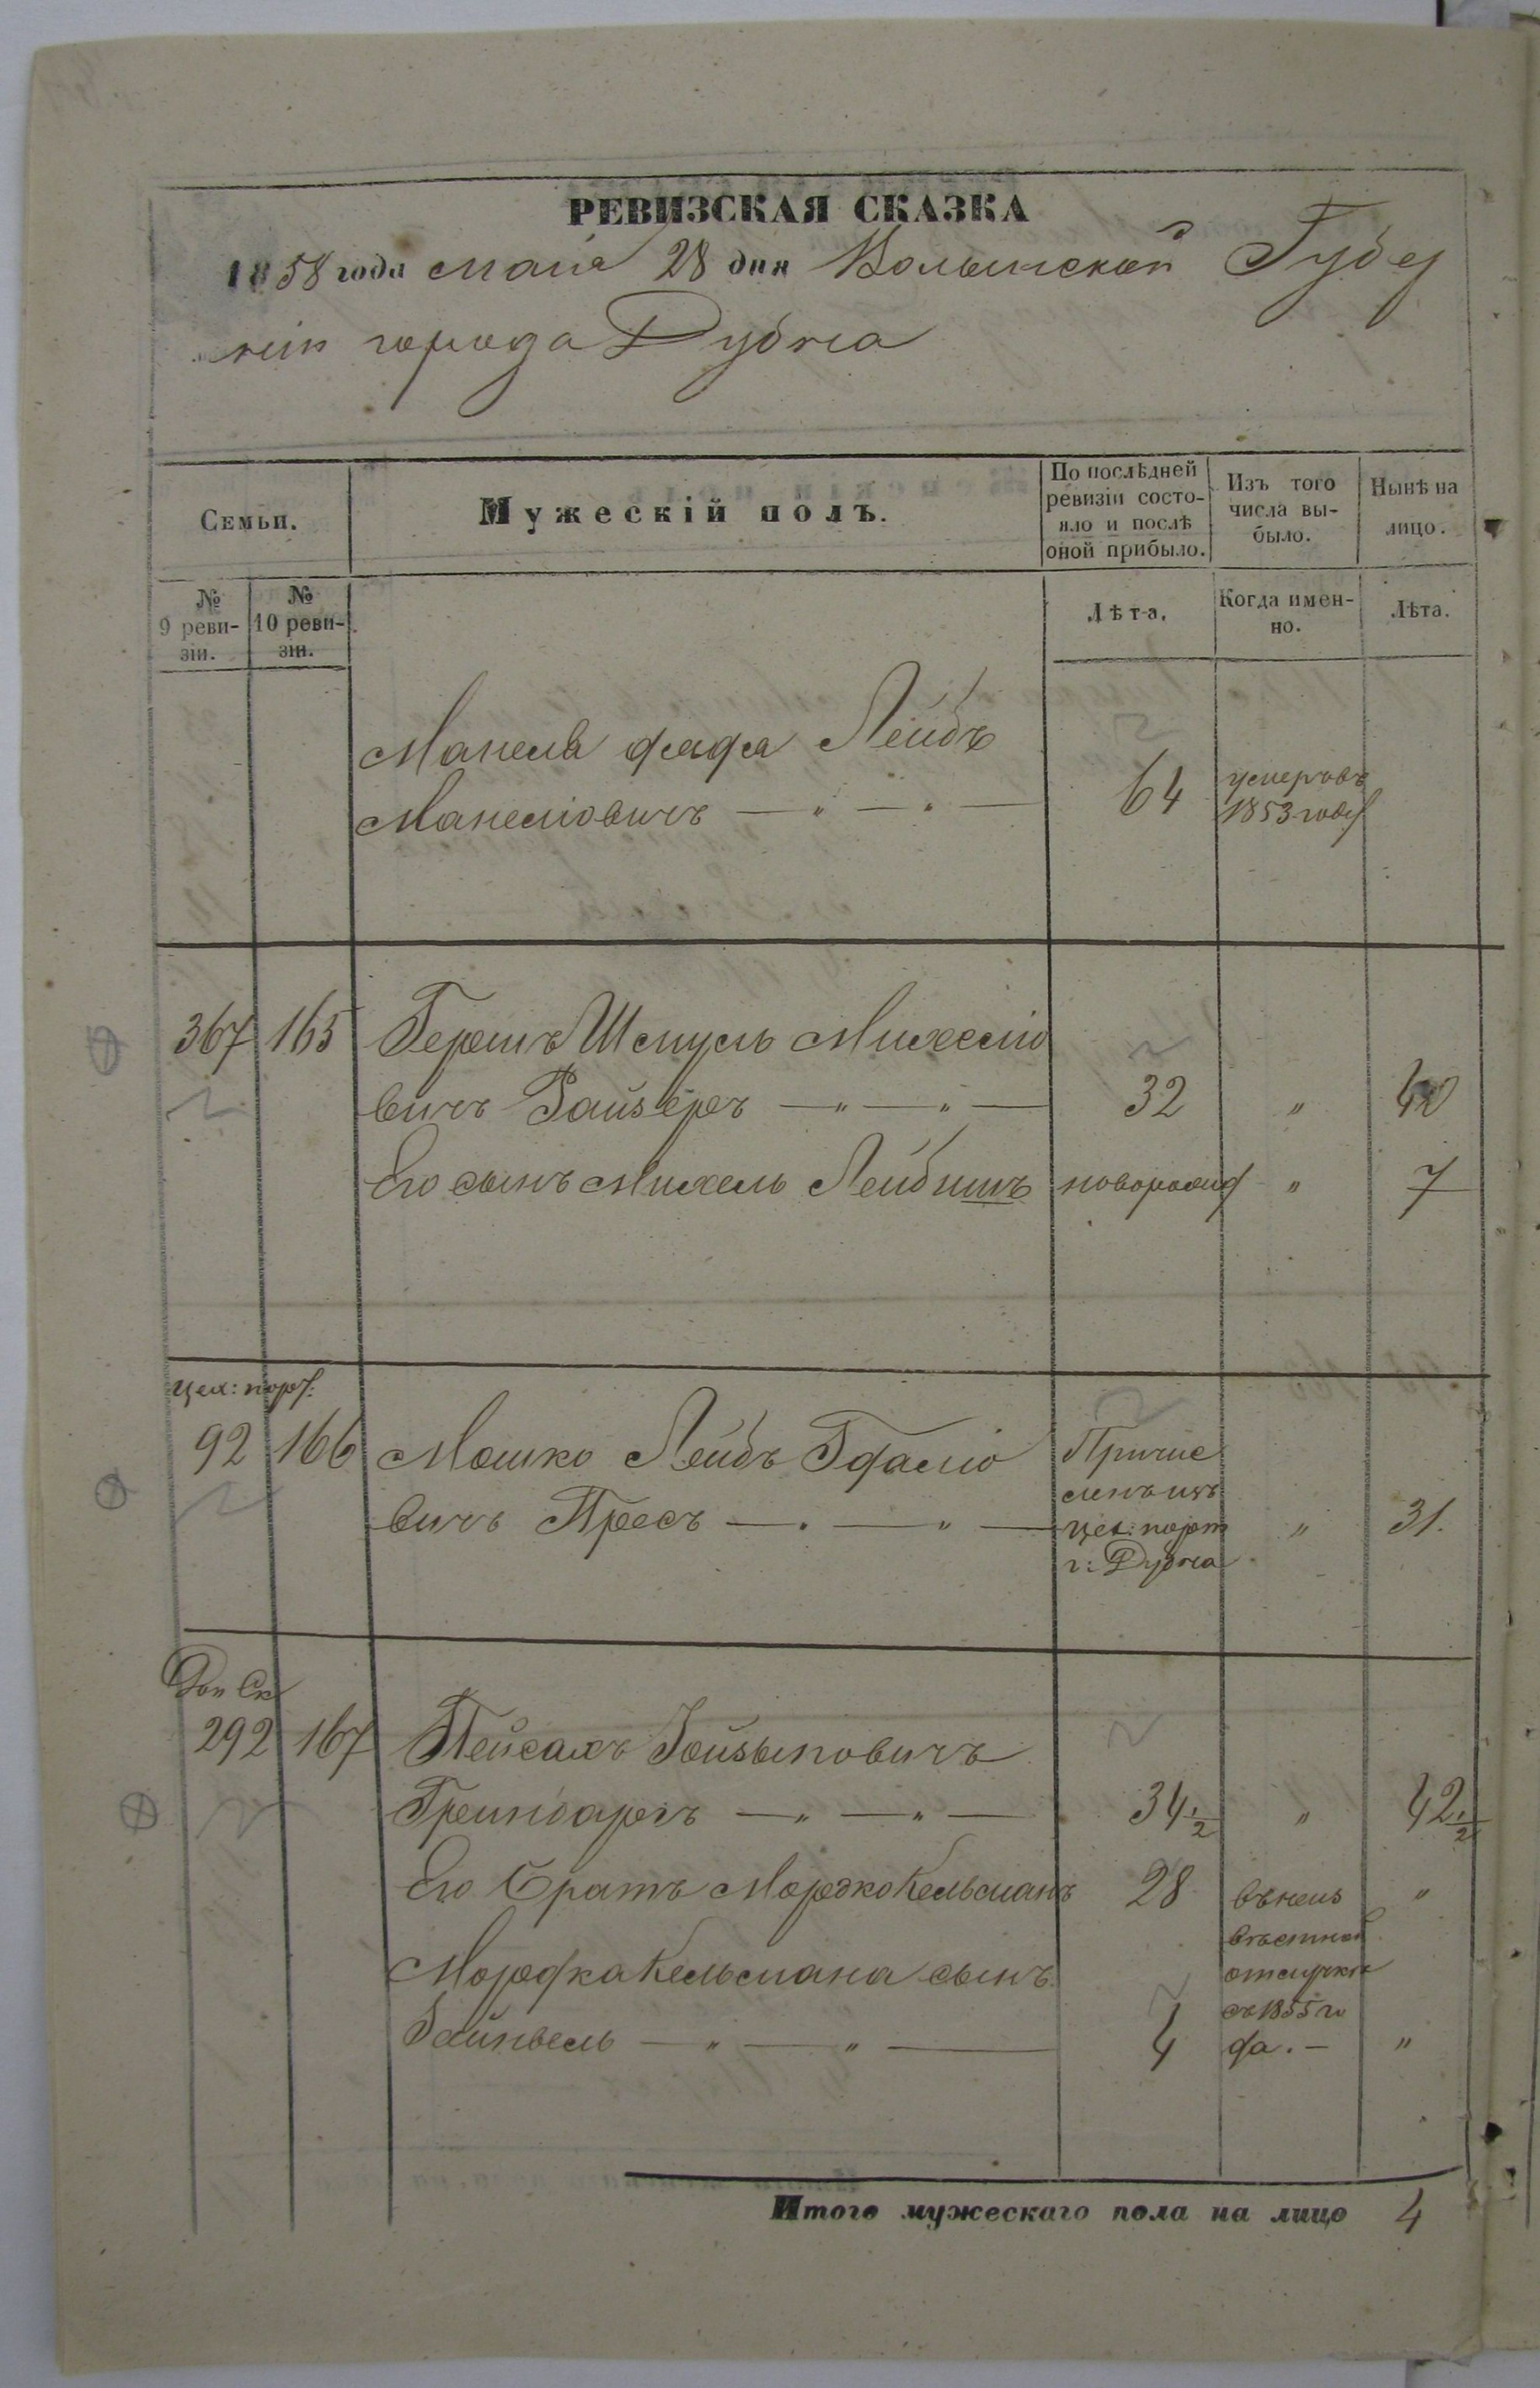 РЕВИЗСКАЯ СКАЗКА
1858 года маія 28 дня Волынской Губер
ніи города Дубна
Семьи.
Мужескій полъ.
По послѣдней
ревизіи состо-
яло и послѣ
оной прибыло.
Изъ того
числа вы-
было.
Нынѣ на
лицо.
№
9 реви-
зіи.
№
10 реви-
зіи.
Лѣта.
Когда имен-
но.
Лѣта.
Манеля дядя Лейбъ
Манеліовичъ — „ — „ — 64 умеръ въ
1853 году
367 165 Гершъ Шмуль Михеліо
вичъ Райзеръ — „ — „ — 32 „ 40
Его сынъ Михель Лейбишъ новорожд „ 7
цех: порт:
92 166 Мошко Лейбъ Гдаліо
вичъ Пресъ — „ — „ —
Причис
ленъ изъ
цех: порт
г: Дубна
„ 31.
Доп Ск
292 167 Пейсахъ Зейзыповичъ
Гринбаргъ — „ — „ — 34 1/2 „ 42 1/2
Его братъ Мордко Кельманъ 28 „
Мордка Кельмана сынъ
Зайнвель — „ — „ — 4 „
въ неиз
вѣстной
отлучкѣ
съ 1855 го
да. —
Итого мужескаго пола на лицо 4